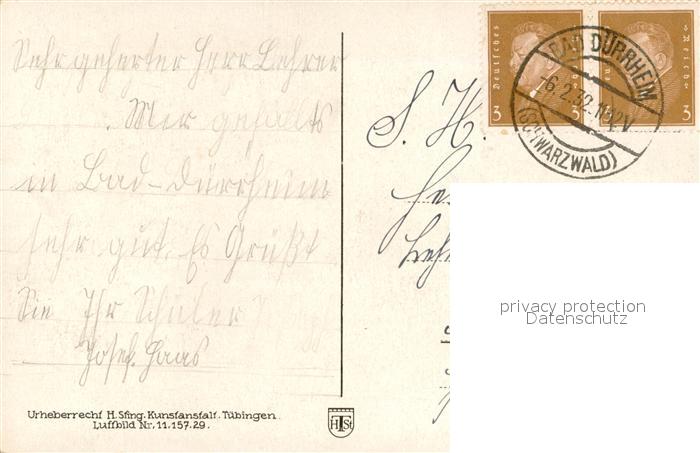 Sehr geherter Herr Lehrer
Mir gefällts
in Bad-Dürrheim
sehr gut. Es Grüßt
Sie Ihr Schüler
Josef. Haas
Urheberrecht H. Sting. Kunstanstalt. Tübingen.
Luftbild Nr. 11.157.29.
HTSt
Deutsches
Reich
3
3
BAD DÜRRHEIM
-6.2.32.11-12V
(SCHWARZWALD)
S. H.
privacy protection
Datenschutz